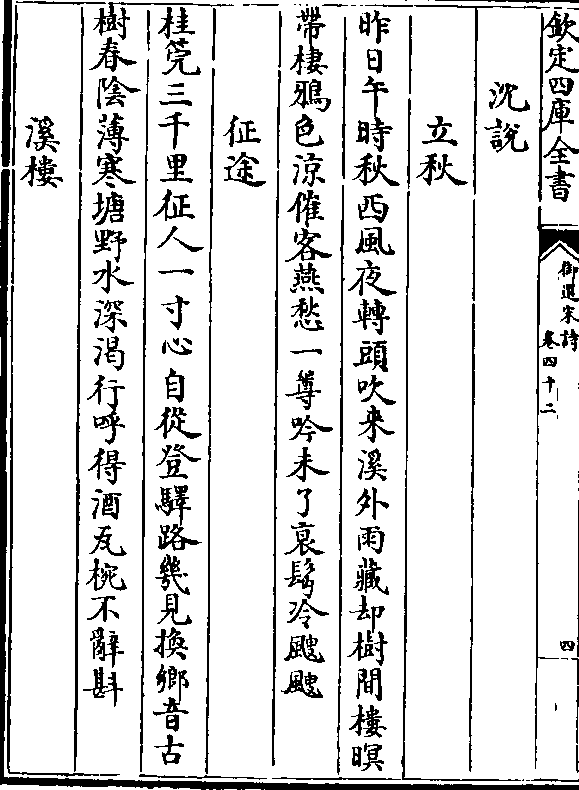 欽定四庫全書
御選宋詩
卷四十二
四
沈說
立秋
昨日午時秋西風夜轉頭吹来溪外雨藏却樹間樓暝
帶棲鴉色涼催客燕愁一尊吟未了衰鬂冷颼颼
征途
桂筦三千里征人一寸心自從登驛路幾見換鄉音古
樹春陰薄寒塘野水深渴行呼得酒瓦椀不辭斟
溪樓